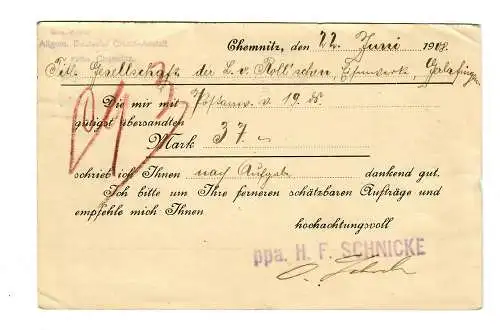 Allgem. Deutsche Credit-Anstalt
Chemnitz, den 22. Juni 1908.
Titl. Gesellschaft der L. v. Roll'schen Eisenwerke, Gerlafingen
Die mir mit Postanw. v. 19. ds.
gütigst übersandten
Mark 37.-
schrieb ich Ihnen nach Aufgabe dankend gut.
Ich bitte um Ihre ferneren schätzbaren Aufträge und
empfehle mich Ihnen
hochachtungsvoll
ppa. H. F. SCHNICKE